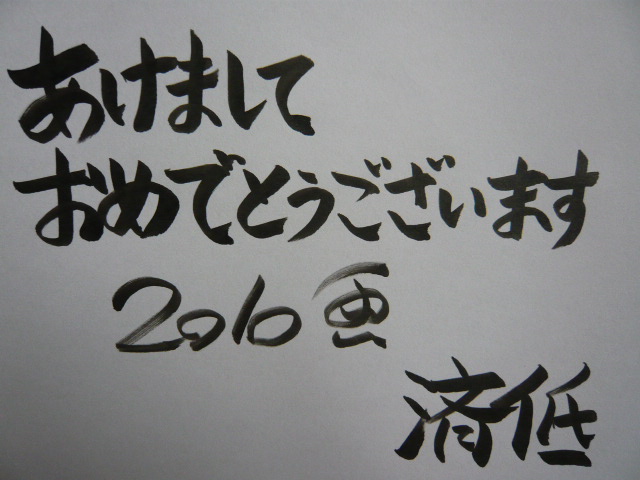 あけまして
おめでとうございます
2010
済低